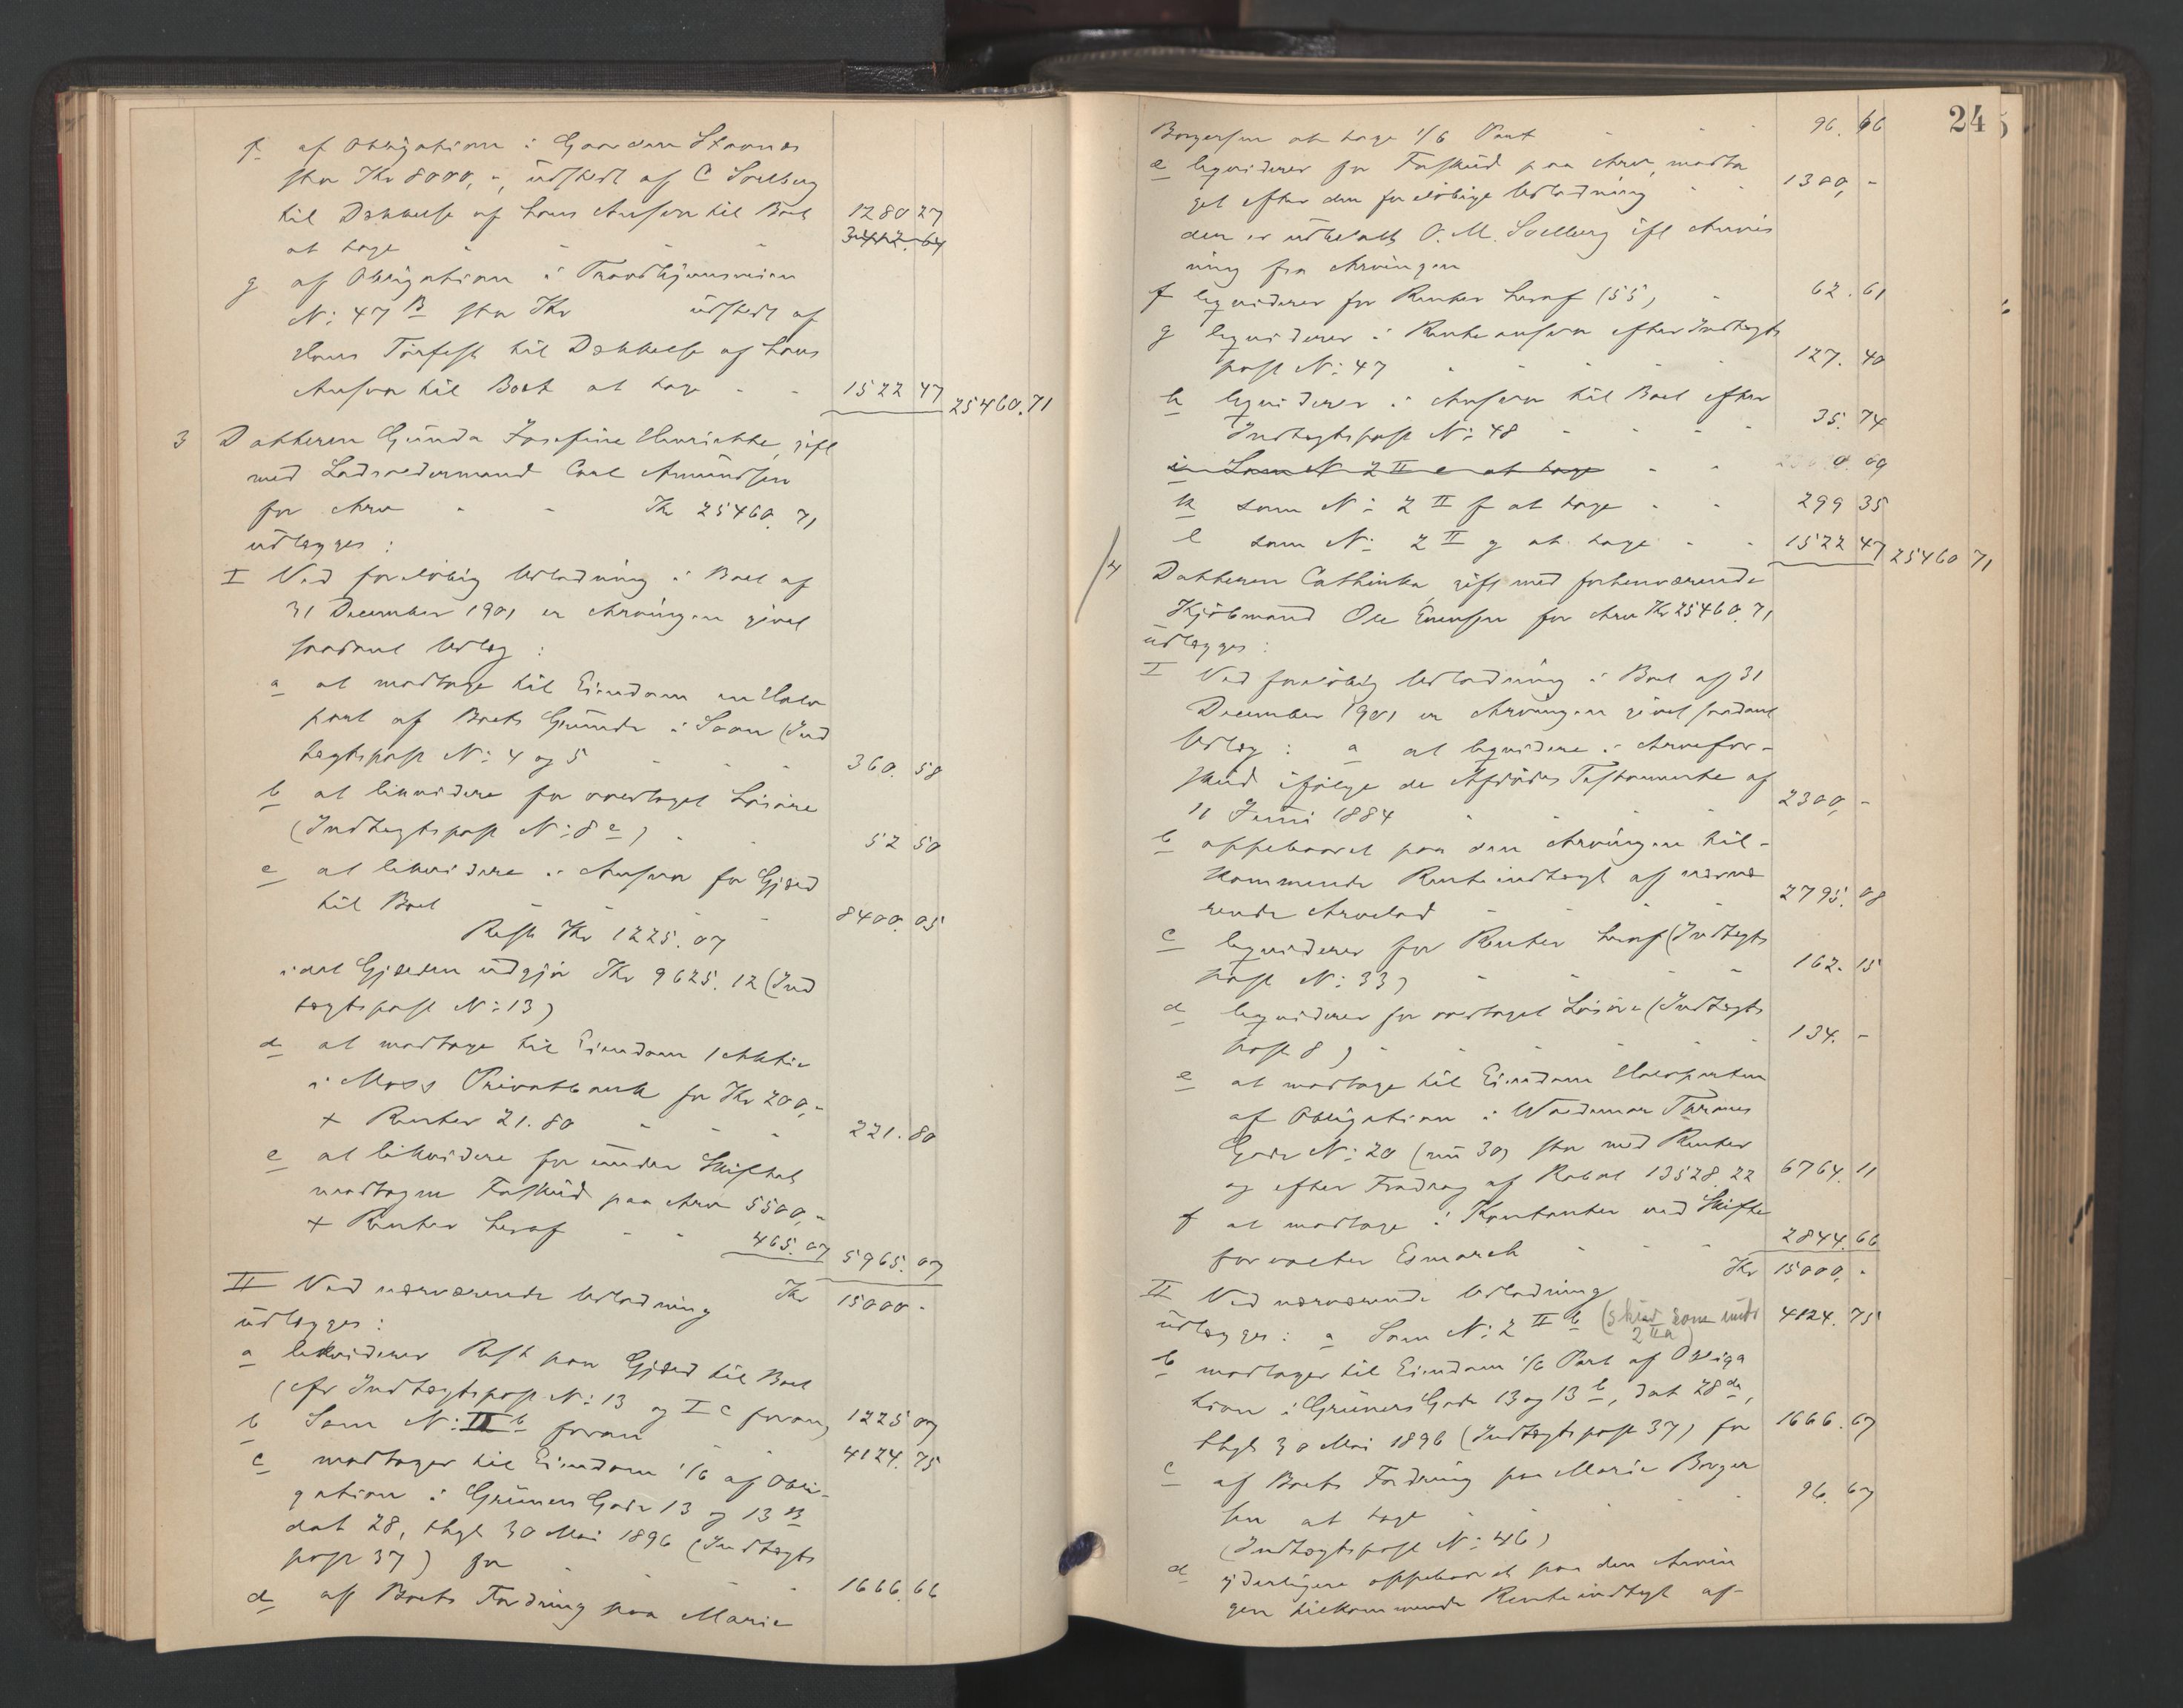 f af Obligation i Gaarden Stavnes
stor Kr 8000,-, udstedt af C Soelberg
til Dækkelse af hans Ansvar til Boet
at tage - - - 1280 27
3442.64
g af Obligation i Trondhjemsveien
N: 47 B stor Kr udstedt af
Hans Torfest til Dækkelse af hans
Ansvar til Boet at tage - - 1522 47 25460.71
3 Datteren Gunda Josefine Henriette, gift
med Ladsoldermand Carl Amundsen
for Arv - - Kr 25460.71
udlægges:
I Ved foreløbig Udlodning i Boet af
31 December 1901 er Arvingen givet
saadant Udlæg:
a at modtage til Eiendom en Halv
part af Boets Grunde i Soon (Ind
tægtspost N: 4 og 5 - - - 360.58
b at likvidere for overtaget Løsøre
(Indtægtspost N: 8 c) - - 52 50
c at likvidere i Ansvar for Gjæld
til Boet - - - - 8400.05
Rest Kr 1225.07
idet Gjælden udgjør Kr 9625.12 (Ind
tægtspost N: 13)
d at modtage til Eiendom 1 Aktie
i Moss Privatbank for Kr 200,-
+ Renter 21.80 - - - 221.80
e at likvidere for under Skiftet
modtagne Forskud paa Arv 5500,-
+ Renter heraf - - 465.07 5965.07
Kr 15000 -
II Ved nærværende Udlodning
udlægges:
a likviderer Rest paa Gjæld til Boet
(cfr Indtægtspost N: 13 og I c foran) 1225 07
b Som N: II b foran - - 4124.75
c modtager til Eiendom 1/6 af Obli-
gation i Grüners Gade 13 og 13 B
dat 28, thgl 30 Mai 1896 (Indtægts
post 37) for - - - 1666.66
d af Boets Fordring paa Marie
24
Borgersen at tage 1/6 Part - - 96.66
e liqviderer for Forskud paa Arv, modta
get efter den foreløbige Udlodning - - 1300,-
den er udbetalt O. M. Soelberg ifl Anvis
ning fra Arvingen
f liqviderer for Renter heraf (55) - 62.61
g liqviderer i Renteansvar efter Indtægts
post N: 47 - - - - 127.40
h liqviderer i Ansvar til Boet efter
Indtægtspost N: 48 - - - - 35.74
i Som N 2 II e at tage - -
k som N: 2 II f at tage - - 299 35
l som N: 2 II g at tage - - 1522 47 25460 71
4 Datteren Cathinka, gift med forhenværende
Kjøbmand Ole Evensen for Arv Kr 25460.71
udlægges:
I Ved foreløbig Udlodning i Boet af 31
December 1901 er Arvingen givet saadant
Udlæg: a at liqvidere i Arvefor-
skud ifølge de Afdødes Testamente af
11 Juni 1884 - - - 2300,-
b oppebaaret paa den Arvingen til-
kommende Renteindtægt af nærvæ
rende Arvelod - - - 2795.08
c liqviderer for Renter heraf (Indtægts
post N: 33) - - - - 162.15
d liqviderer for overtaget Løsøre (Indtægts
post 8) - - - - 134.-
e at modtage til Eiendom Halvparten
af Obligation i Waldemar Thranes
Gade N: 20 (nu 30) stor med Renter
og efter Fradrag af Rabat 13528.22 6764.11
f at modtage i Kontanter ved Skifte
forvalter Esmarch - - - 2844.66
Kr 15000,-
II Ved nærværende Udlodning
udlægges: a Som N: 2 II b (skal som under 2 II a) 4124.75
b modtager til Eiendom 1/6 Part af Obliga
tion i Grüners Gade 13 og 13 b, dat 28de,
thgl 30 Mai 1896 (Indtægtspost 37) for 1666.67
c af Boets Fordring paa Marie Borger
sen at tage - - - 96.67
(Indtægtspost N: 46)
d yderligere oppebaaret paa den Arvin
gen tilkommende Renteindtægt af